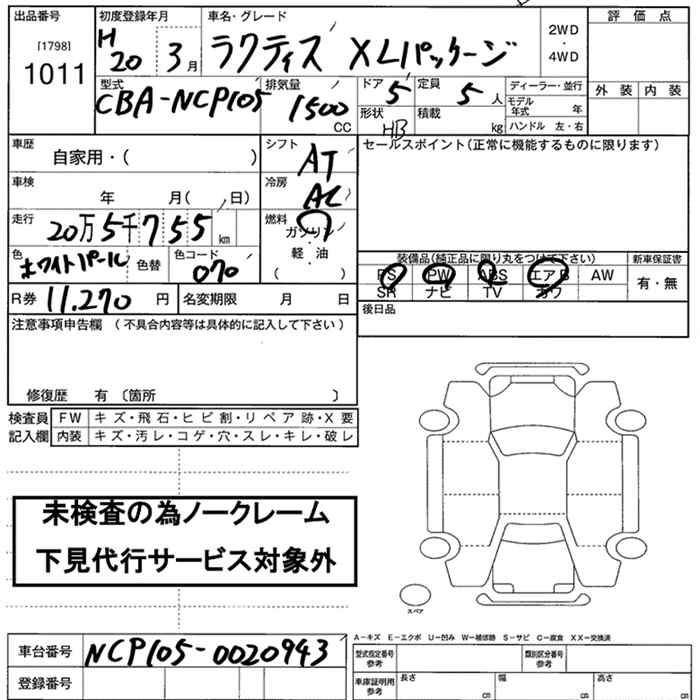 出品番号 [1798] 1011
初度登録年月 H20 3月
車名・グレード ラクティス XLパッケージ
2WD・4WD
評価点
外装 内装
型式 CBA-NCP105
排気量 1500 CC
ドア 5
形状 HB
定員 5 人
積載 kg
ディーラー・並行
モデル年式 年
ハンドル 左・右
車歴 自家用・( )
シフト AT
セールスポイント(正常に機能するものに限ります)
車検 年 月( 日)
冷房 AC
走行 20万5千755km
燃料 ガソリン・軽油( )
色 ホワイトパール 色替
色コード 070
装備品(純正品に限り丸をつけて下さい)
新車保証書
PS PW ABS エアB AW
SR ナビ TV カワ
有・無
R券 11,270 円 名変期限 月 日
後日品
注意事項申告欄 (不具合内容等は具体的に記入して下さい)
修復歴 有 〔箇所 〕
検査員記入欄
FW キズ・飛石・ヒビ割・リペア跡・X要
内装 キズ・汚レ・コゲ・穴・スレ・キレ・破レ
未検査の為ノークレーム
下見代行サービス対象外
スペア
A-キズ E-エクボ U-凹み W-補修跡 S-サビ C-腐食 XX-交換済
車台番号 NCP105-0020943
型式指定番号 参考
類別区分番号 参考
登録番号
車庫証明用 参考
長さ cm 幅 cm 高さ cm